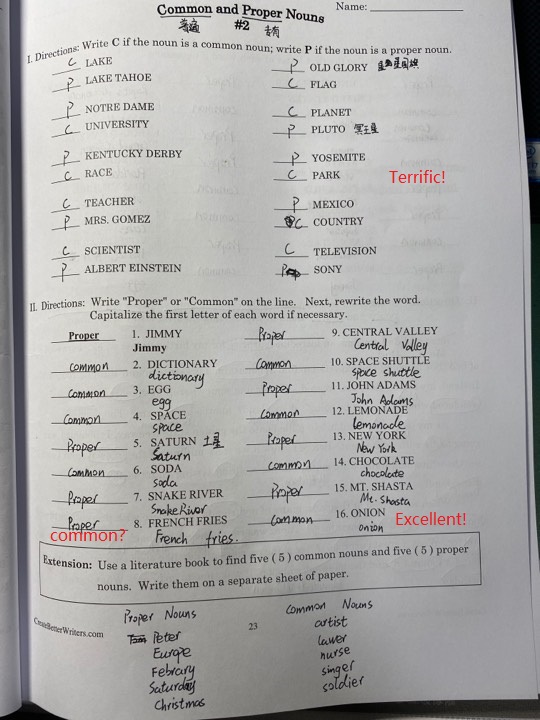 Common and Proper Nouns
Name:
普通 #2 专有
I. Directions: Write C if the noun is a common noun; write P if the noun is a proper noun.
C LAKE
P LAKE TAHOE
P NOTRE DAME
C UNIVERSITY
P KENTUCKY DERBY
C RACE
C TEACHER
P MRS. GOMEZ
C SCIENTIST
P ALBERT EINSTEIN
P OLD GLORY
C FLAG
C PLANET
P PLUTO 冥王星
P YOSEMITE
C PARK
Terrific!
P MEXICO
C COUNTRY
C TELEVISION
P SONY
II. Directions: Write "Proper" or "Common" on the line. Next, rewrite the word.
Capitalize the first letter of each word if necessary.
Proper 1. JIMMY
Jimmy
common 2. DICTIONARY
dictionary
common 3. EGG
egg
common 4. SPACE
space
Proper 5. SATURN 土星
Saturn
common 6. SODA
soda
Proper 7. SNAKE RIVER
Snake River
Proper 8. FRENCH FRIES
common?
French fries.
Proper 9. CENTRAL VALLEY
Central Valley
common 10. SPACE SHUTTLE
space shuttle
Proper 11. JOHN ADAMS
John Adams
common 12. LEMONADE
lemonade
Proper 13. NEW YORK
New York
common 14. CHOCOLATE
chocolate
Proper 15. MT. SHASTA
Mt. Shasta
common 16. ONION
onion
Excellent!
Extension: Use a literature book to find five ( 5 ) common nouns and five ( 5 ) proper
nouns. Write them on a separate sheet of paper.
Proper Nouns
Peter
Europe
Febrary
Saturday
Christmas
Common Nouns
artist
lawer
nurse
singer
soldier
CreateBetterWriters.com
23